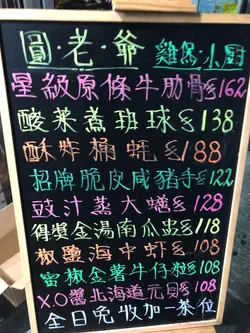 圓·老·爺 雞煲·小廚
星級原條牛肋骨$162
酸菜煮斑球$138
酥炸桶蚝$188
招牌脆皮咸豬手$122
豉汁蒸大鱔$128
得獎金湯南瓜盅$108
椒鹽海中蝦$108
蜜椒金薯牛仔粒$108
X.O醬北海道元貝$108
全日免收加一茶位